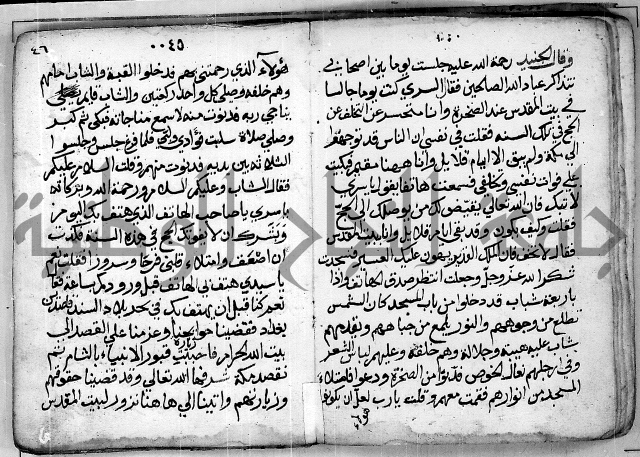 وقال الجنيد رحمة الله عليه جلست يوما بين اصحابي
نتذاكر عباد الله الصالحين فقال السري كنت يوما جالسا
في بيت المقدس عند الصخرة وانا متحسر عن التخلف عن
الحج في تلك السنه فقلت في نفسي ان الناس قد توجهوا
الى مكة ولم يبق الا ايام قلايل وانا ههنا مقيم فبكيت
على فوات نفسي وتخلفي فسمعت هاتفا يقول يا سري
لا تبك فان الله تعالى يقيض لك من يوصلك الى الحج
فقلت وكيف يكون وقد بقى ايام قلايل وانا ببيت المقدس
فقال لا تخف فان الملك القدير يهون عليك العسير فسجدت
شكرا لله عز وجل وجعلت انتظر صدق الهاتف واذا
باربعة شباب قد دخلوا من باب المسجد كان الشمس
تطلع من وجوههم والنور يلمع من جباههم وتقدمهم
شاب عليه هيبة وجلالة وهم خلفه وعليهم لباس الشعر
وفي ارجلهم نعال الخوص فدنوا من الصخرة ودعوا فامتلاء
المسجد من انوارهم فقمت معهم وقلت يارب لعل ان يكونوا
هولاء
٠٠٤٥
٤٦
هولاء الذي رحمتني بهم فدخلوا القبة والشاب امامهم
وهم خلفه وصلى كل واحد ركعتين والشاب قايم
يناجي ربه فدنوت منه لاسمع مناجاته فبكى ثم كبر
وصلى صلاة سلبت فؤادي فلما فرغ جلس وجلسوا
الثلاثة بين يديه فدنوت منهم وقلت السلام عليكم
فقال الشاب وعليكم السلام ورحمة الله وبركاته
يا سري يا صاحب الهاتف الذي هتف بك اليوم
وبشرك ان لا يفوتك الحج في هذه السنة فكدت
ان اصعف وامتلاء قلبي فرحا وسرورا فقلت نعم
يا سيدي هتف بي الهاتف قبل ورودك بساعة فقال
نعم كنا قبل ان يهتف بك في بلاد السند
بغداد فقضينا حوايجنا وعزمنا على القصد الى
بيت الله الحرام فاحببت زيارة قبور الانبياء بالشام ثم
نقصد مكة شرفها الله تعالى وقد قضينا حقوقهم
وزيارتهم واتينا الى ها هنا نزور لبيت المقدس
جامعة الرياض